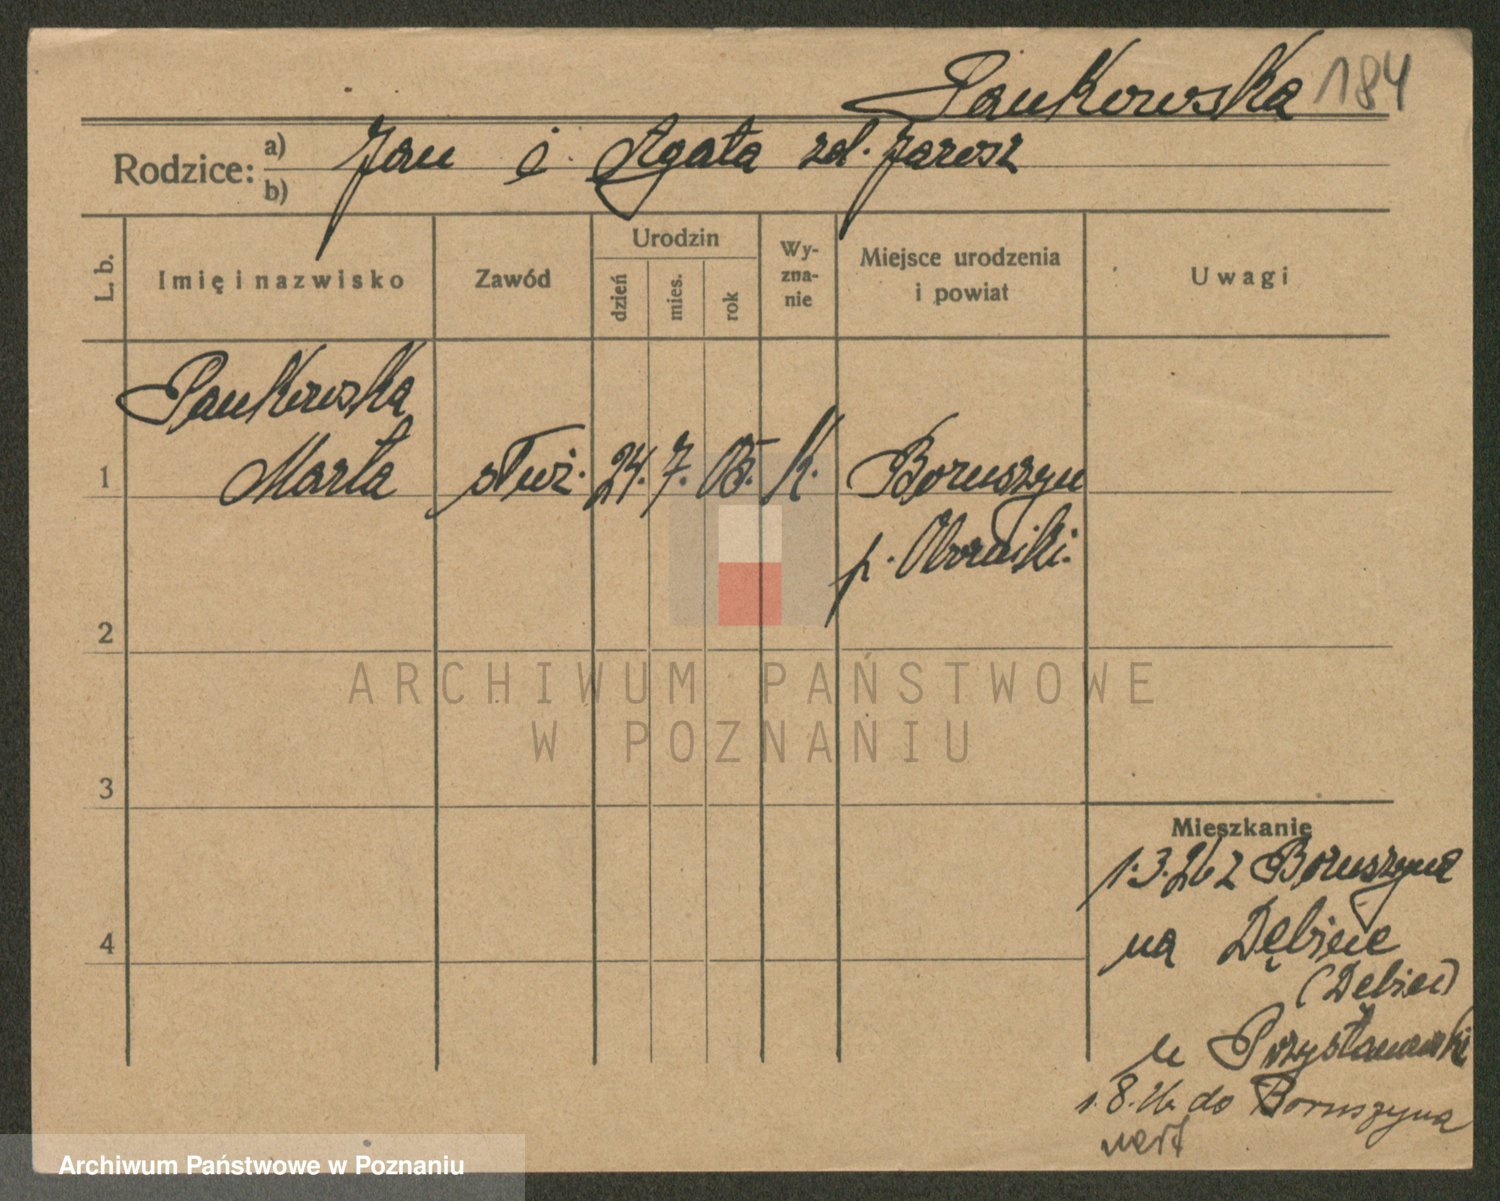 Pankowska 184
Rodzice: a) b) Jan i Agata zd. Jarosz
L. b.
Imię i nazwisko
Zawód
Urodzin
dzień
mies.
rok
Wy-
zna-
nie
Miejsce urodzenia
i powiat
Uwagi
Pankowska
1 Marta służ. 24. 7. 05. K. Boruszyn
p. Oborniki.
2
ARCHIWUM PAŃSTWOWE
W POZNANIU
3
Mieszkanie
1.3.26 z Boruszyna
4
na Dębinie
(Dębiec)
u
1.8.26 do Boruszyna
Archiwum Państwowe w Poznaniu